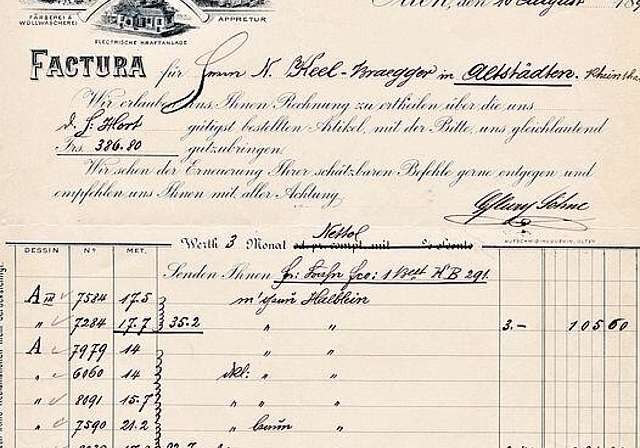 FÄRBEREI &
WOLLWÄSCHEREI
APPRETUR
ELECTRISCHE KRAFTANLAGE
den 10 August 189
FACTURA für Herrn N. Keel-Braegger in Altstädten.
Wir erlauben uns Ihnen Rechnung zu ertheilen über die uns
d. J. Hort gütigst bestellten Artikel, mit der Bitte, uns gleichlautend
Frs. 386.80 gutzubringen.
Wir sehen der Erneuerung Ihrer schätzbaren Befehle gerne entgegen und
empfehlen uns Ihnen mit aller Achtung
Söhne
Werth 3 Monat
DESSIN Nº MET.
Senden Ihnen 1 291.
A III 7584 17.5 Halblein
" 7284 17.7 35.2 " " 3.- 105 60
A 7979 14 " "
" 6060 14 dkl: " "
" 8091 15.7 " "
" 7590 21.2 " braun "